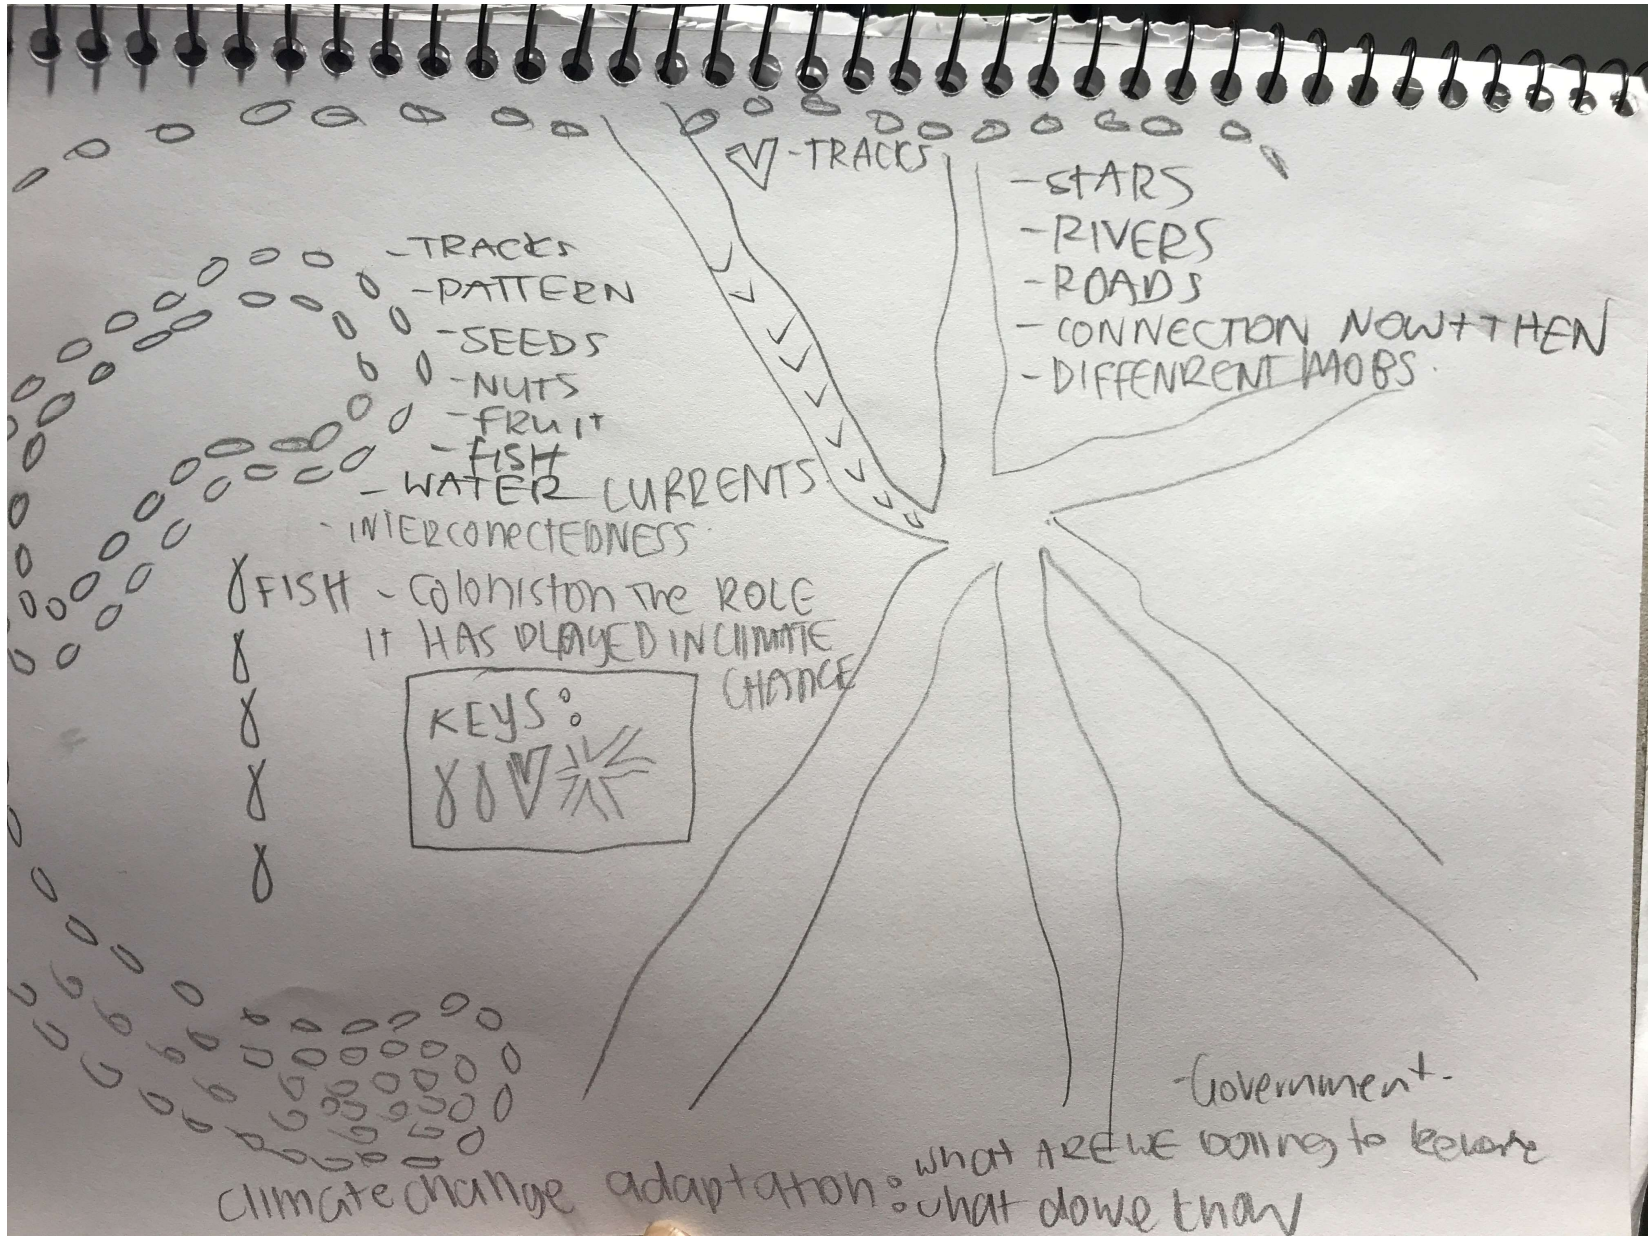 -TRACKS
-STARS
-RIVERS
-ROADS
-CONNECTION NOW+THEN
-DIFFENRENT MOBS.
-TRACKS
-PATTERN
-SEEDS
-NUTS
-FRUIT
-FISH
-WATER CURRENTS.
-INTERCONECTEDNESS
FISH - COLONISTON THE ROLE
IT HAS PLAYED IN CLIMATE
CHANGE
KEYS:
-Government-
climate change adaptation: what ARE WE DOING to
what do we know